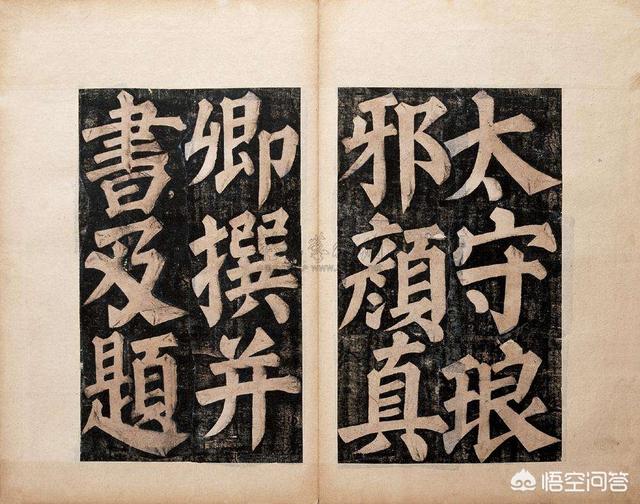 太守琅
邪顔真
卿撰并
書及題
悟空问答